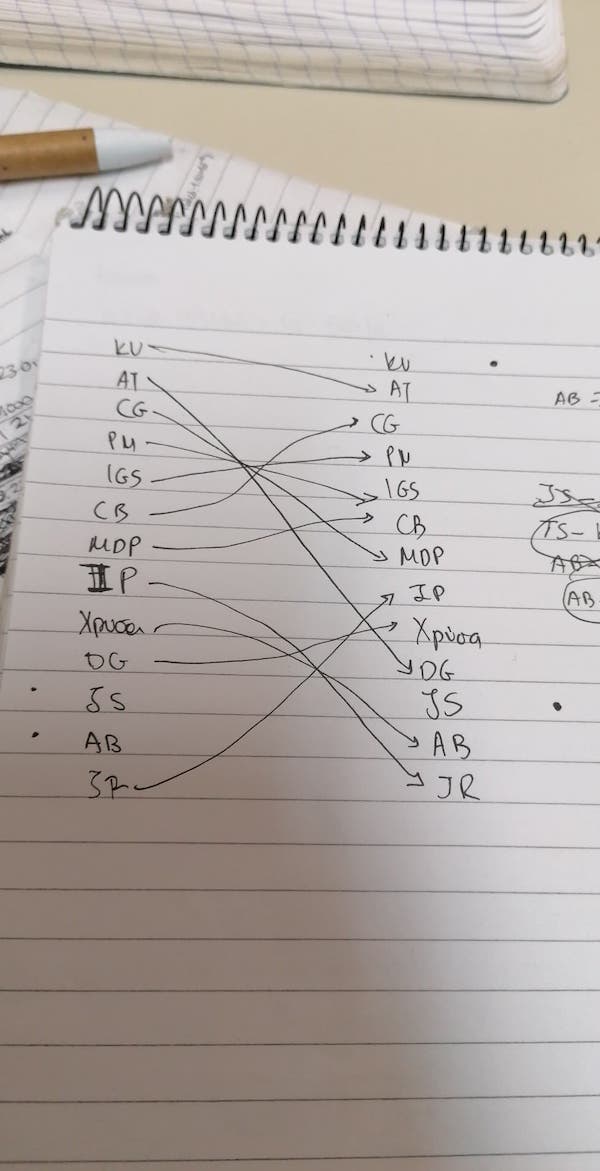 KU KU
AT AT
AB =
CG CG
PM PN
IGS IGS
JS
CB CB
JS -
MDP MDP
AB
IP IP
AB
Χρυσα Χρύσα
DG DG
JS JS
AB AB
JR JR